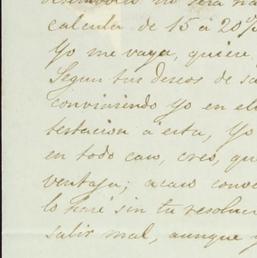 desembolso no será na
calcula de 15 a 20%
Yo me vaya, quiere
Segun tus deseos de sa
conviniendo Yo en ell
testacion á esta, Yo
en todo caso, creo, qu
ventaja; acaso conoc
lo haré sin tu resoluc
salir mal, aunque y